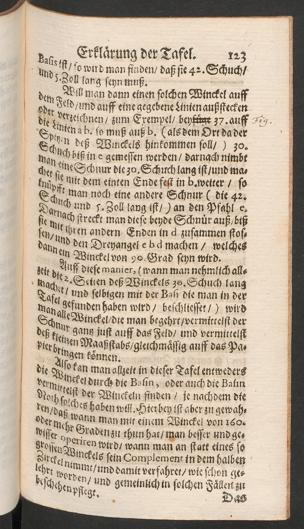 Erklärung der Tafel. 123
Basis ist / so wird man finden / daß sie 42. Schuch /
und 5. Zoll lang seyn muß.
Will man dann einen solchen Winckel auff
dem Feld / und auff eine gegebene Linien außstecken
oder verzeichnen / zum Exempel / bey 37. auff Fig.
die Linien a b. so muß auß b. (als dem Ort da der
Spitz deß Winckels hinkommen soll / ) 30.
Schuch biß in c gemessen werden / darnach nimbt
man eine Schnur die 30. Schuch lang ist / und ma-
chet sie mit dem einten Ende fest in b. weiter / so
knüpfft man noch eine andere Schnur (die 42.
Schuch und 5. Zoll lang ist / ) an den Pfahl c.
Darnach streckt man diese beyde Schnür auß, biß
sie mit ihren andern Enden in d zusammen stos-
sen / und den Dreyangel c b d machen / welches
dann ein Winckel von 90. Grad seyn wird.
Auff diese manier, (wann man nehmlich alle-
zeit die 2. Seiten deß Winckels 30. Schuch lang
machet / und selbigen mit der Basi die man in der
Tafel gefunden haben wird / beschliesset / ) wird
man alle Winckel / die man begehrt / vermittelst der
Schnur gantz just auff das Feld / und vermittelst
deß kleinen Maaßstabs / gleichmässig auff das Pa-
pier bringen können.
Also kan man allzeit in dieser Tafel entweders
die Winckel durch die Basin, oder auch die Basin
vermittelst der Winckeln finden / je nachdem die
Noth solches haben will. Hierbey ist aber zu gewah-
ren / daß wann man mit einem Winckel von 160.
oder mehr Graden zu thun hat / man besser und ge-
wisser operiren wird / wann man an statt eines so
grossen Winckels sein Complement in dem halben
Zirckel nimmt / und damit verfahret / wie schon ge-
lehrt worden / und gemeinlich in solchen Fällen zu
beschehen pflegt.
Das